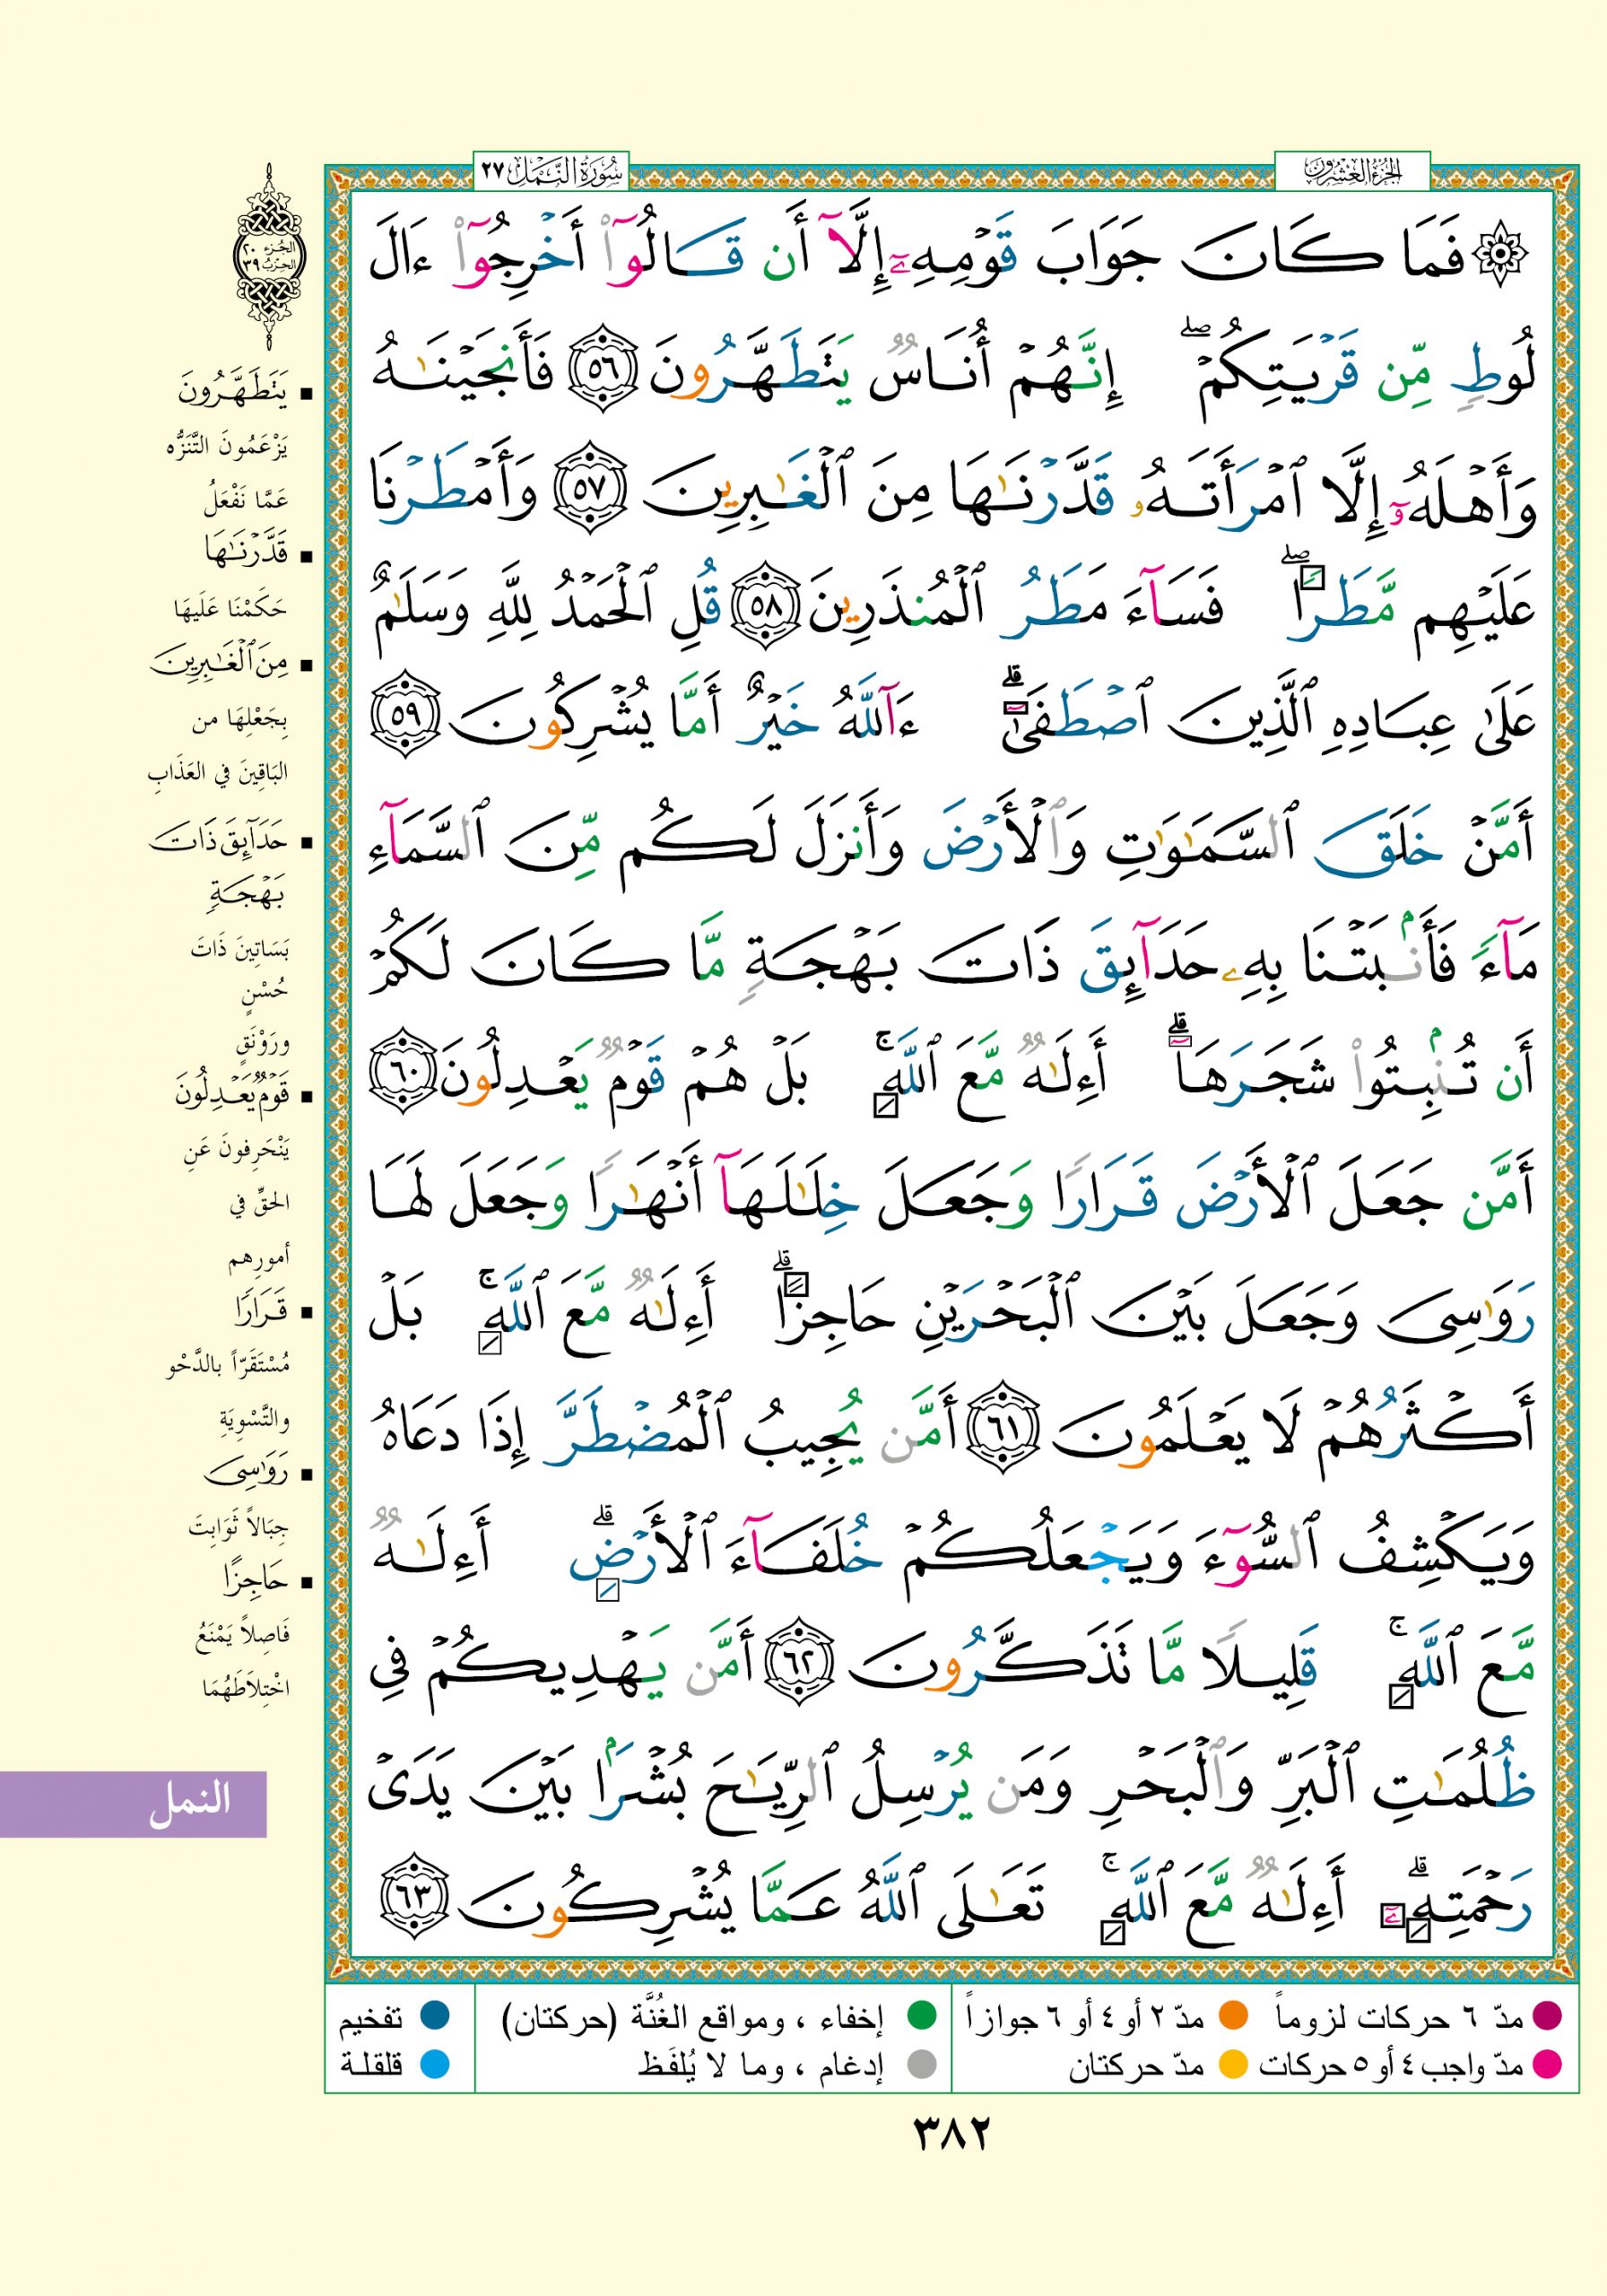 الجزء العشرون
سورة النمل ٢٧
۞ فَمَا كَانَ جَوَابَ قَوْمِهِۦٓ إِلَّآ أَن قَالُوٓا۟ أَخْرِجُوٓا۟ ءَالَ
لُوطٍ مِّن قَرْيَتِكُمْ ۖ إِنَّهُمْ أُنَاسٌ يَتَطَهَّرُونَ ٥٦ فَأَنجَيْنَـٰهُ
وَأَهْلَهُۥٓ إِلَّا ٱمْرَأَتَهُۥ قَدَّرْنَـٰهَا مِنَ ٱلْغَـٰبِرِينَ ٥٧ وَأَمْطَرْنَا
عَلَيْهِم مَّطَرًا ۖ فَسَآءَ مَطَرُ ٱلْمُنذَرِينَ ٥٨ قُلِ ٱلْحَمْدُ لِلَّهِ وَسَلَـٰمٌ
عَلَىٰ عِبَادِهِ ٱلَّذِينَ ٱصْطَفَىٰٓ ۗ ءَآللَّهُ خَيْرٌ أَمَّا يُشْرِكُونَ ٥٩
أَمَّنْ خَلَقَ ٱلسَّمَـٰوَٰتِ وَٱلْأَرْضَ وَأَنزَلَ لَكُم مِّنَ ٱلسَّمَآءِ
مَآءً فَأَنۢبَتْنَا بِهِۦ حَدَآئِقَ ذَاتَ بَهْجَةٍ مَّا كَانَ لَكُمْ
أَن تُنۢبِتُوا۟ شَجَرَهَآ ۗ أَءِلَـٰهٌ مَّعَ ٱللَّهِ ۚ بَلْ هُمْ قَوْمٌ يَعْدِلُونَ ٦٠
أَمَّن جَعَلَ ٱلْأَرْضَ قَرَارًا وَجَعَلَ خِلَـٰلَهَآ أَنْهَـٰرًا وَجَعَلَ لَهَا
رَوَٰسِىَ وَجَعَلَ بَيْنَ ٱلْبَحْرَيْنِ حَاجِزًا ۗ أَءِلَـٰهٌ مَّعَ ٱللَّهِ ۚ بَلْ
أَكْثَرُهُمْ لَا يَعْلَمُونَ ٦١ أَمَّن يُجِيبُ ٱلْمُضْطَرَّ إِذَا دَعَاهُ
وَيَكْشِفُ ٱلسُّوٓءَ وَيَجْعَلُكُمْ خُلَفَآءَ ٱلْأَرْضِ ۗ أَءِلَـٰهٌ
مَّعَ ٱللَّهِ ۚ قَلِيلًا مَّا تَذَكَّرُونَ ٦٢ أَمَّن يَهْدِيكُمْ فِى
ظُلُمَـٰتِ ٱلْبَرِّ وَٱلْبَحْرِ وَمَن يُرْسِلُ ٱلرِّيَـٰحَ بُشْرًۢا بَيْنَ يَدَىْ
رَحْمَتِهِۦٓ ۗ أَءِلَـٰهٌ مَّعَ ٱللَّهِ ۚ تَعَـٰلَى ٱللَّهُ عَمَّا يُشْرِكُونَ ٦٣
الجزء ٢٠
الحزب ٣٩
يَتَطَهَّرُونَ
يَزْعَمُونَ التَّنَزُّه
عَمَّا نَفْعَلُ
قَدَّرْنَـٰهَا
حَكَمْنَا عَلَيهَا
مِنَ ٱلْغَـٰبِرِينَ
بِجَعْلِهَا من
البَاقِينَ في العَذَابِ
حَدَآئِقَ ذَاتَ
بَهْجَةٍ
بَسَاتِينَ ذَاتَ
حُسْنٍ
ورَوْنَقٍ
قَوْمٌ يَعْدِلُونَ
يَنْحَرِفونَ عَنِ
الحَقِّ في
أمورِهم
قَرَارًا
مُسْتَقَرّاً بالدَّحْو
والتَّسْوِيَةِ
رَوَٰسِىَ
جِبَالاً ثَوَابِتَ
حَاجِزًا
فَاصِلاً يَمْنَعُ
اخْتِلاَطَهُمَا
النمل
مدّ ٦ حركات لزوماً مدّ ٢ أو ٤ أو ٦ جوازاً إخفاء ، ومواقع الغُنَّة (حركتان) تفخيم
مدّ واجب ٤ أو ٥ حركات مدّ حركتان إدغام ، وما لا يُلفَظ قلقلة
٣٨٢